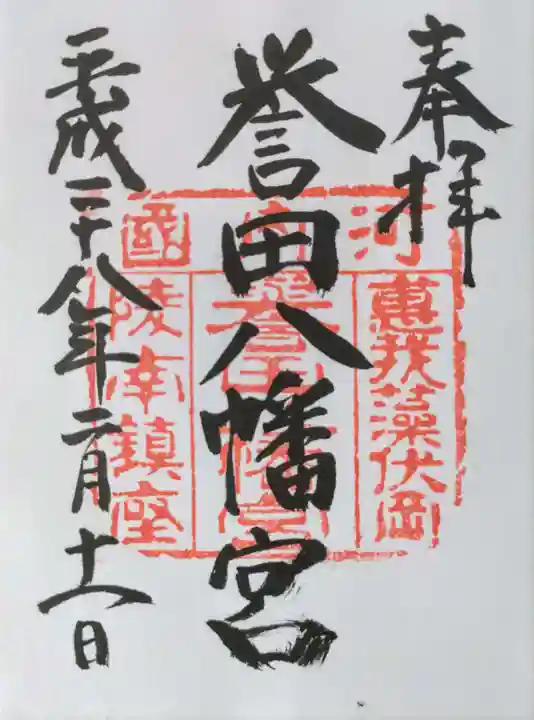 奉拝
誉田八幡宮
平成二十八年二月十八日
河内國
惠我藻伏岡
陵南鎮座